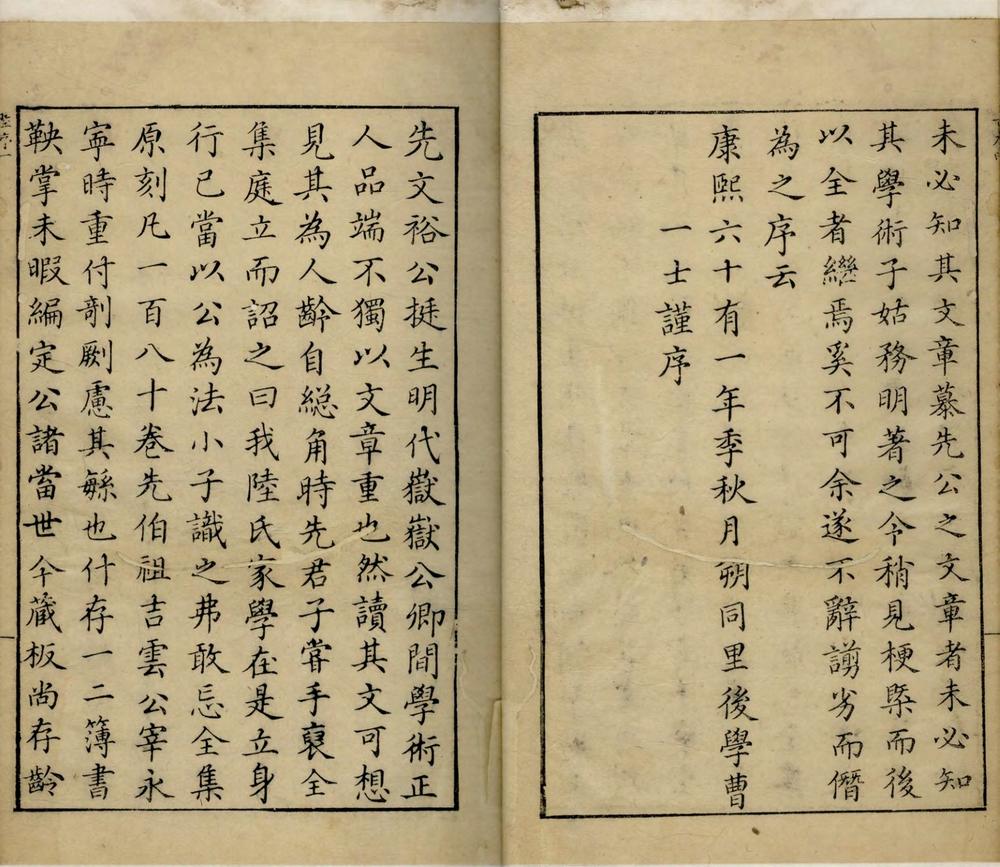 未必知其文章慕先公之文章者未必知
其學術子姑務明著之令稍見梗槩而後
以全者繼焉奚不可余遂不辭譾劣而僭
為之序云
康熙六十有一年季秋月朔同里後學曹
一士謹序
先文裕公挺生明代嶽嶽公卿間學術正
人品端不獨以文章重也然讀其文可想
見其為人齡自緫角時先君子嘗手裒全
集庭立而詔之曰我陸氏家學在是立身
行已當以公為法小子識之弗敢忘全集
原刻凡一百八十卷先伯祖吉雲公宰永
寧時重付剞劂慮其緐也什存一二簿書
鞅掌未暇編定公諸當世今藏板尚存齡